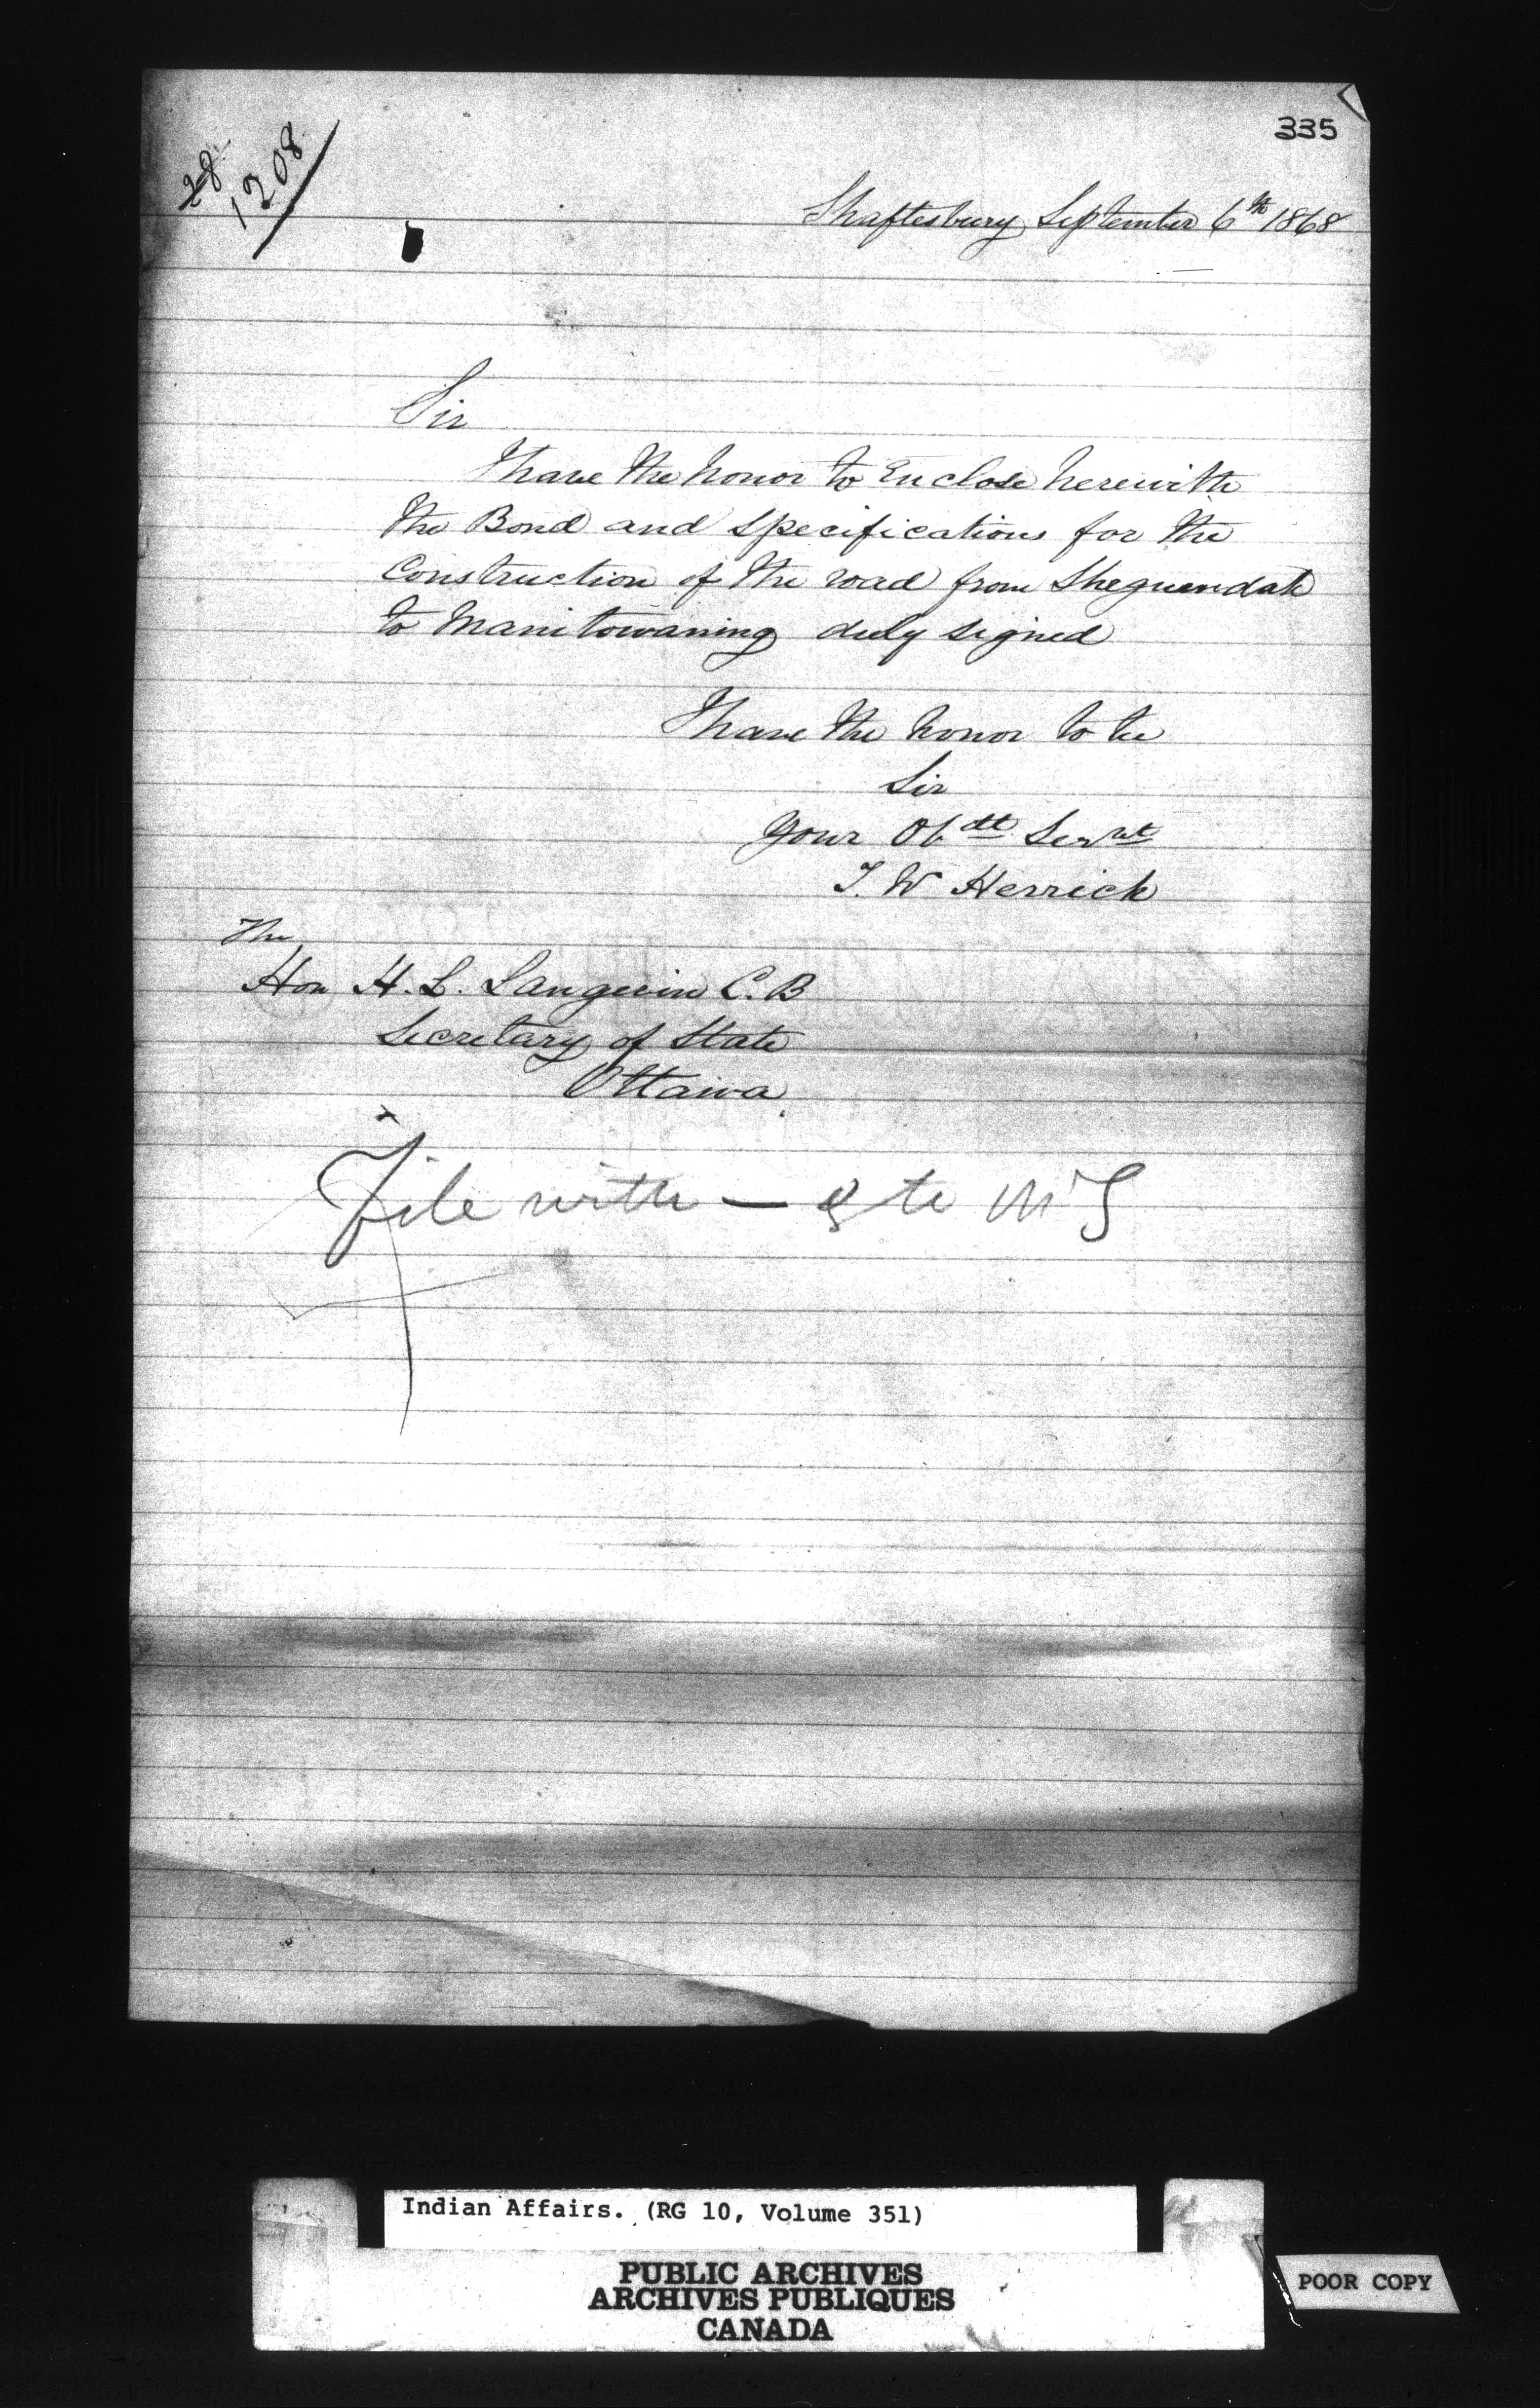 335
28.
1208
Shaftesbury September 6th 1868
Sir
I have the honor to Enclose herewith
the Bond and specifications for the
Construction of the road from Sheguendah
to Manitowaning duly signed
I have the honor to be
Sir
Your Obdt Servt
T. W Herrick
The
Hon H. L. Langevin C.B
Secretary of State
Ottawa
File with —
Indian Affairs. (RG 10, Volume 351)
PUBLIC ARCHIVES
ARCHIVES PUBLIQUES
CANADA
POOR COPY